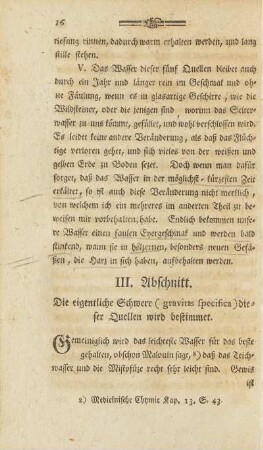 16
rießung rinnen, dadurch warm erhalten werden, und lang
stille stehen.
V. Das Wasser dieser fünf Quellen bleibet auch
durch ein Jahr und länger rein im Geschmak und oh
ne Fäulung, wenn es in glasartige Geschirre, wie die
Wildsteiner, oder die jenigen sind worinn das Selter
wasser zu uns kömmt, gefüllet, und wohl verschlossen wird.
Es leidet keine andere Veränderung, als daß das Flüch
tige verloren gehet, und sich vieles von der weißen und
gelben Erde zu Boden setzet. Doch wenn man dafür
sorget, daß das Wasser in der möglichst-kürzesten Zeit
erkältet, so ist auch diese Veränderung nicht merklich,
von welchem ich ein mehrers im anderten Theil zu be
weisen mir vorbehalten habe. Endlich bekommen unse
re Wässer einen faulen Eyergeschmak und werden bald
stinkend, wann sie in hölzernen, besonders neuen Gefä
ßen, die Harz in sich haben, aufbehalten werden.
III. Abschnitt.
Die eigentliche Schwere (gravitas specifica) die
ser Quellen wird bestimmet.
Gemeiniglich wird das leichteste Wasser für das beste
gehalten, obschon Malouin sagt, a) daß das Teich-
wasser und die Mistpfüze recht sehr leicht sind. Gewis
ist
a) Medicinische Chymie Kap. 13. S. 43.